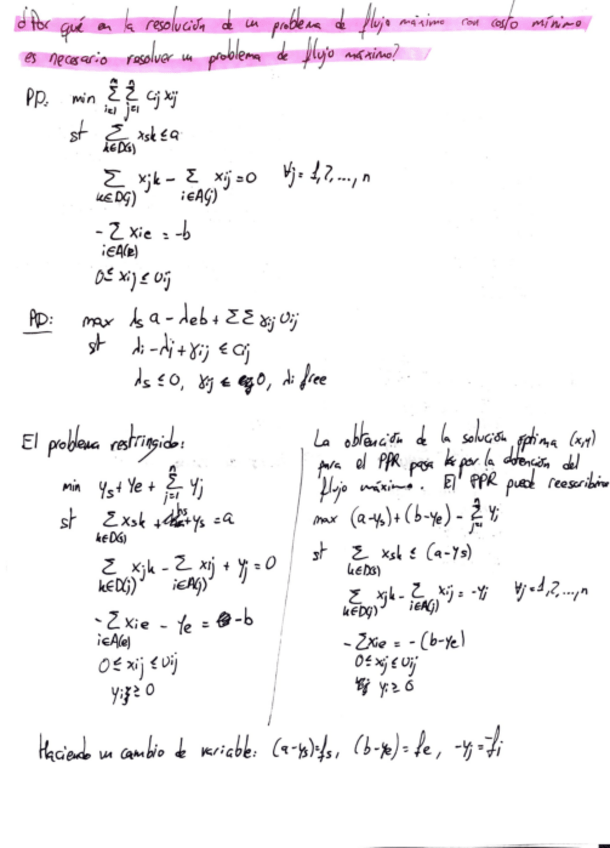 ¿Por qué en la resolución de un problema de flujo máximo con costo mínimo
es necesario resolver un problema de flujo máximo?
PP: min Σ_{i=1}^{n} Σ_{j=1}^{n} cij xij
st Σ_{k∈D(s)} xsk ≤ a
Σ_{k∈D(j)} xjk - Σ_{i∈A(j)} xij = 0 ∀j = 1,2,...,n
-Σ_{i∈A(e)} xie = -b
0 ≤ xij ≤ uij
PD: max λs a - λe b + ΣΣ γij uij
st λi - λj + γij ≤ cij
λs ≤ 0, γij ≤ 0, λi free
El problema restringido:
min ys + ye + Σ_{j=1}^{n} yj
st Σ_{k∈D(s)} xsk + hs + ys = a
Σ_{k∈D(j)} xjk - Σ_{i∈A(j)} xij + yj = 0
-Σ_{i∈A(e)} xie - ye = -b
0 ≤ xij ≤ uij
yi ≥ 0
La obtención de la solución óptima (x,y)
para el PPR pasa por la obtención del
flujo máximo. El PPR puede reescribirse
max (a-ys) + (b-ye) - Σ_{j=1}^{n} yj
st Σ_{k∈D(s)} xsk ≤ (a-ys)
Σ_{k∈D(j)} xjk - Σ_{i∈A(j)} xij = -yj ∀j = 1,2,...,n
-Σxie = -(b-ye)
0 ≤ xij ≤ uij
yi ≥ 0
Haciendo un cambio de variable: (a-ys) = fs, (b-ye) = fe, -yj = -fj